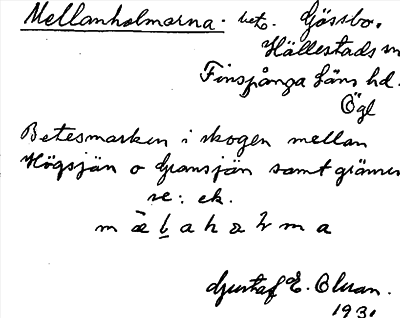 Mellanholmarna. bet. Gössbo.
Hällestads
Finspånga läns hd.
Ögl
Betesmarken i skogen mellan
Högsjön o Gransjön samt
se: ek.
Gustaf E. Olsson.